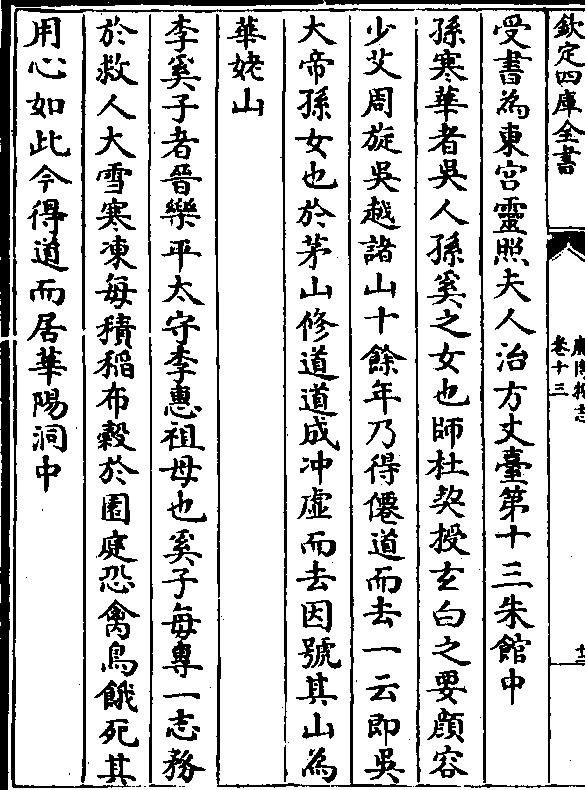 欽定四庫全書
卷十三
受書為東宮靈照夫人治方丈臺第十三朱館中
孫寒華者吳人孫奚之女也師杜契授玄白之要顔容
少艾周旋吳越諸山十餘年乃得僊道而去一云即吳
大帝孫女也於茅山修道道成沖虛而去因號其山為
華姥山
李奚子者晉樂平太守李惠祖母也奚子每專一志務
於救人大雪寒凍每積稻布穀於園庭恐禽鳥餓死其
用心如此今得道而居華陽洞中